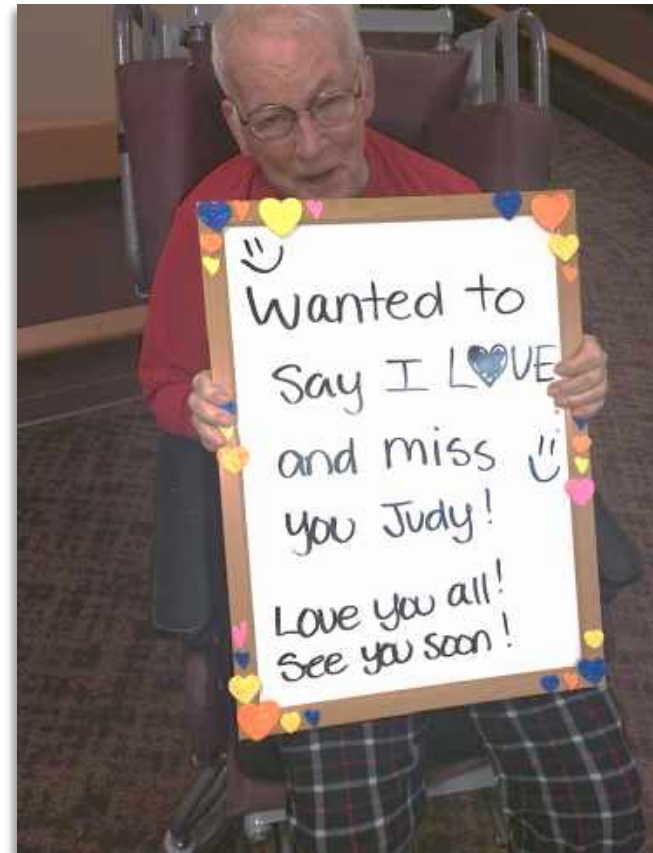 Wanted to
Say I LOVE
and miss
you Judy!
Love you all!
See you soon!